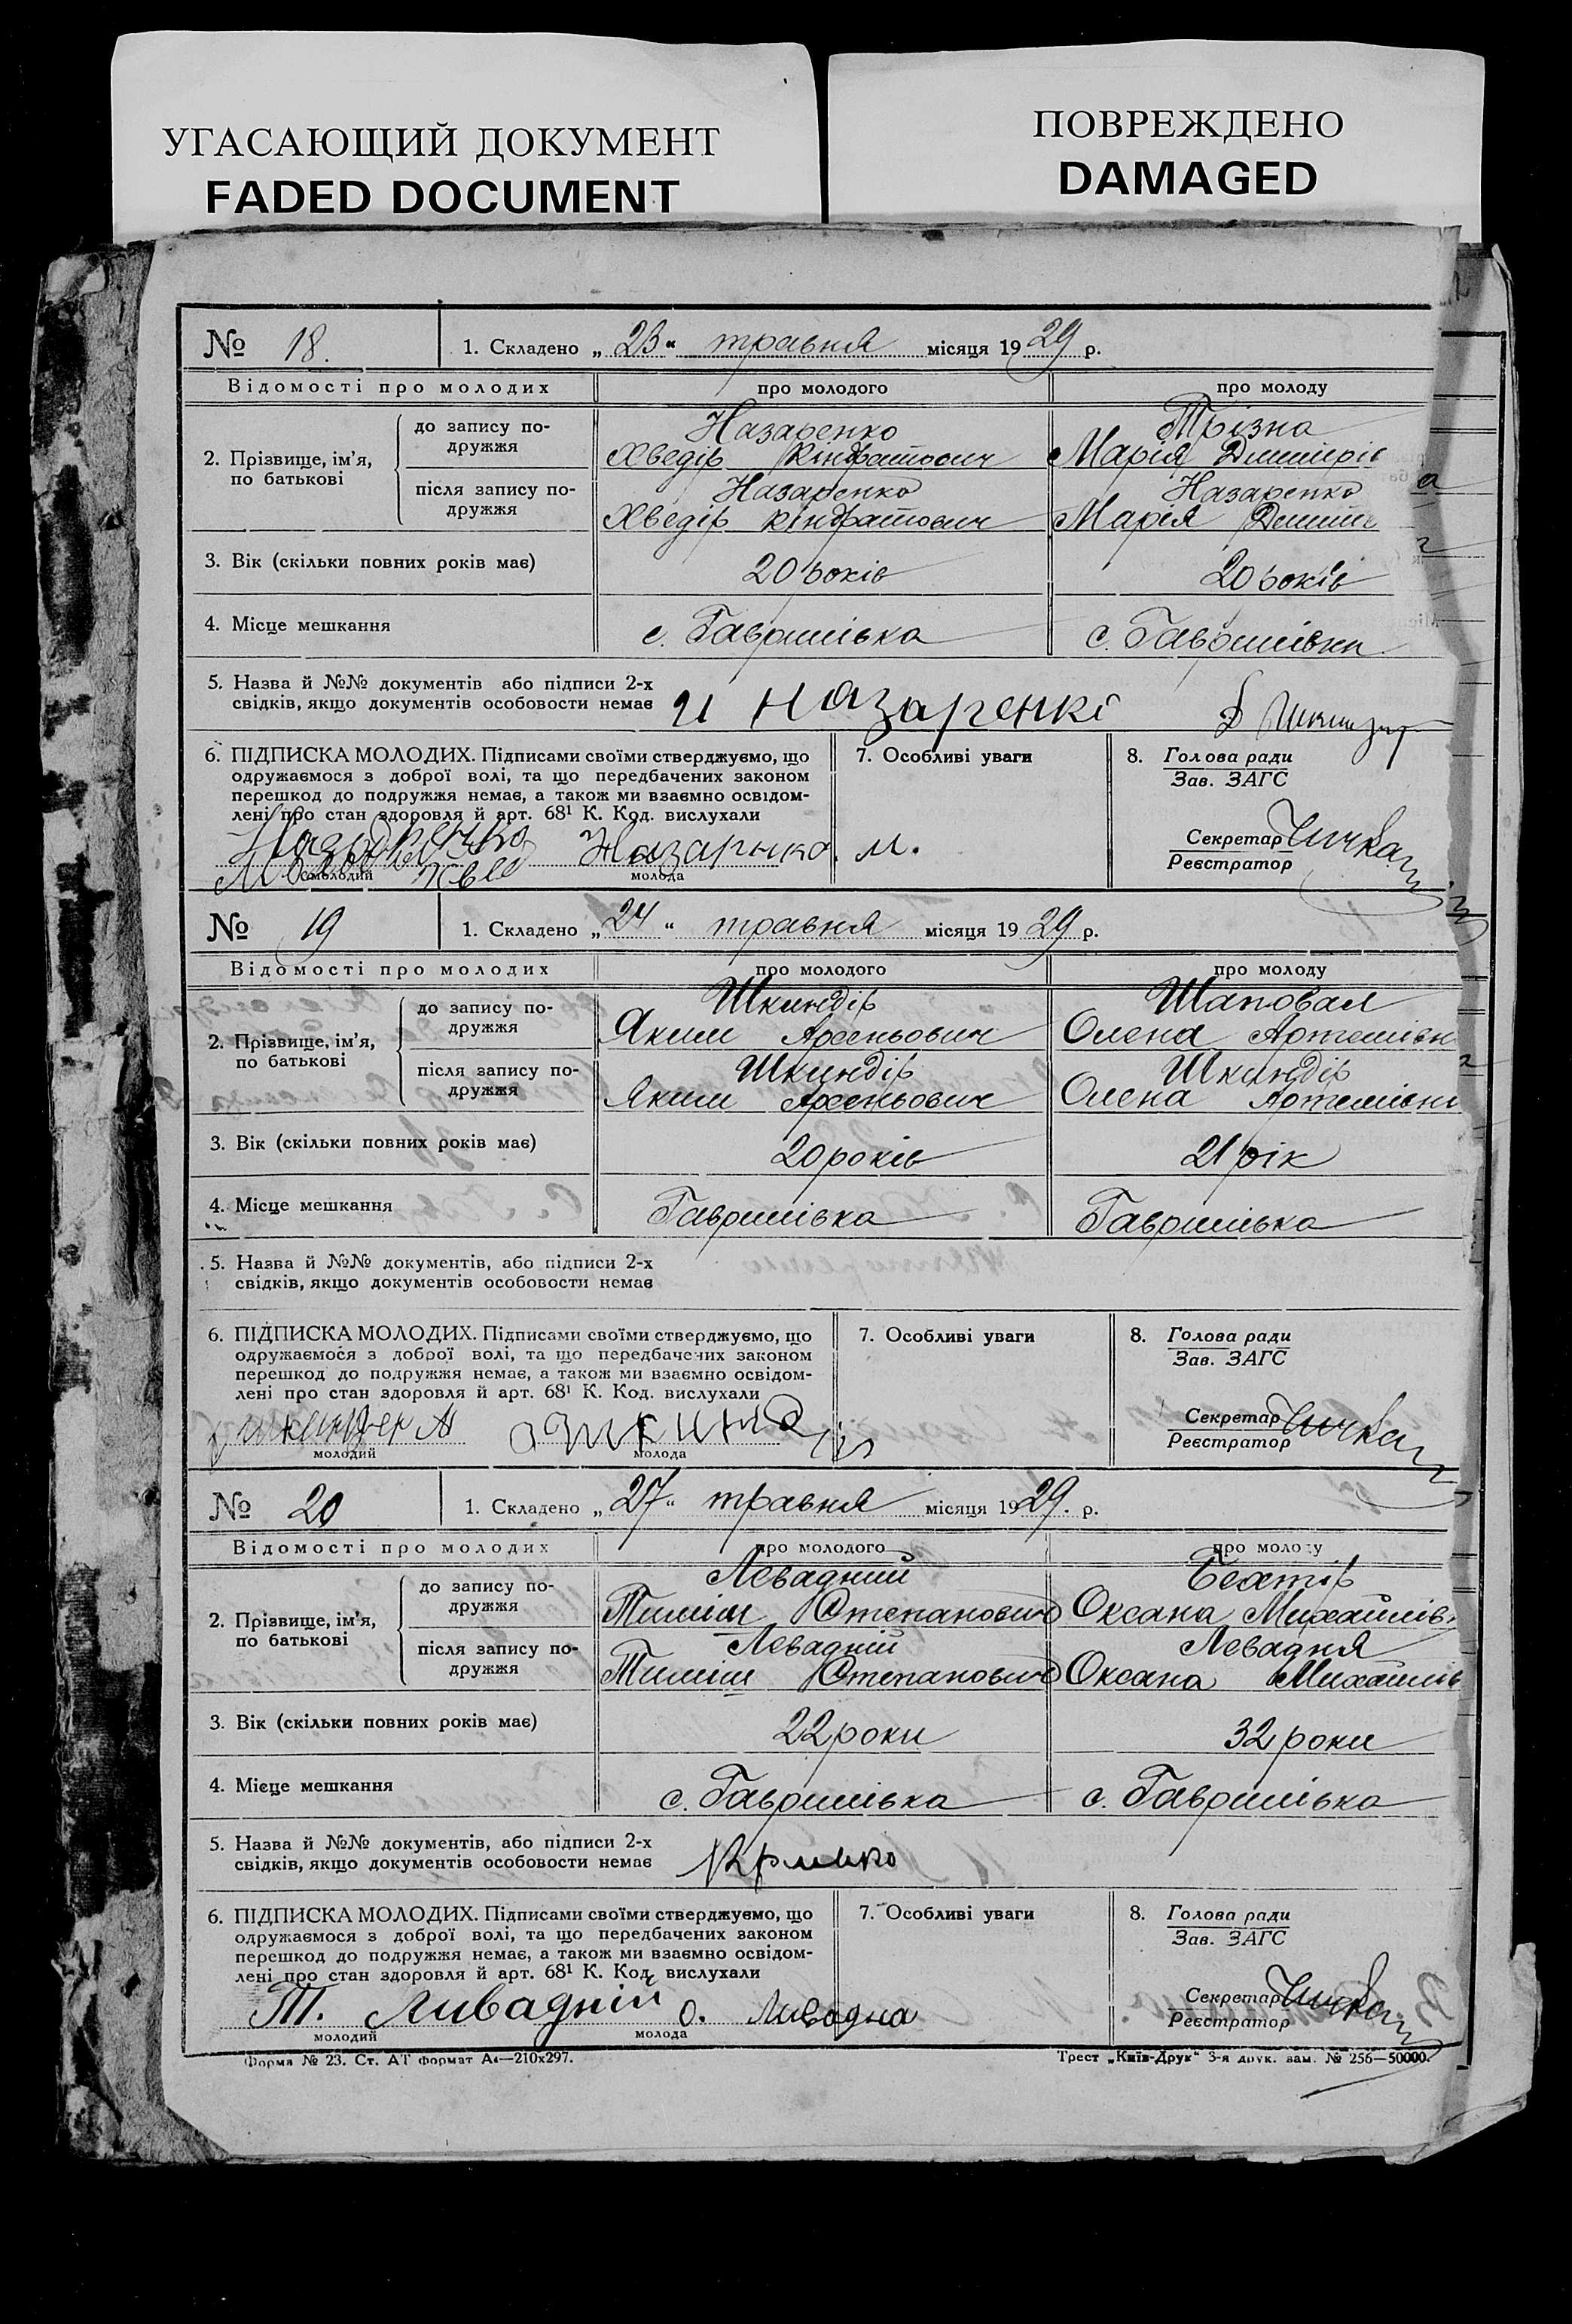 УГАСАЮЩИЙ ДОКУМЕНТ
FADED DOCUMENT
ПОВРЕЖДЕНО
DAMAGED
№ 18. 1. Складено „23“ травня місяця 1929 р.
Відомості про молодих про молодого про молоду
2. Прізвище, ім'я, по батькові
до запису подружжя Назаренко Трізна
Хведір Кіндратович Марія Дмитрів
після запису подружжя Назаренко Назаренко
Хведір Кіндратович Марія
3. Вік (скільки повних років має) 20 років 20 років
4. Місце мешкання с. Гаврошівка с. Гаврошівка
5. Назва й №№ документів або підписи 2-х
свідків, якщо документів особовости немає И Назаренкі
6. ПІДПИСКА МОЛОДИХ. Підписами своїми стверджуємо, що 7. Особливі уваги 8. Голова ради
одружаємося з доброї волі, та що передбачених законом Зав. ЗАГС
перешкод до подружжя немає, а також ми взаємно освідом-
лені про стан здоровля й арт. 68¹ К. Код. вислухали
Назаренко Назаренко М. Секретар
молодий молода Реєстратор
№ 19 1. Складено „24“ травня місяця 1929 р.
Відомості про молодих про молодого про молоду
2. Прізвище, ім'я, по батькові
до запису подружжя Шкиндір Шаповал
Яким Арсеньович Олена Артемівн
після запису подружжя Шкиндір Шкиндір
Яким Арсеньович Олена Артемівн
3. Вік (скільки повних років має) 20 років 21 рік
4. Місце мешкання Гаврошівка Гаврошівка
5. Назва й №№ документів, або підписи 2-х
свідків, якщо документів особовости немає
6. ПІДПИСКА МОЛОДИХ. Підписами своїми стверджуємо, що 7. Особливі уваги 8. Голова ради
одружаємося з доброї волі, та що передбачених законом Зав. ЗАГС
перешкод до подружжя немає, а також ми взаємно освідом-
лені про стан здоровля й арт. 68¹ К. Код. вислухали
Секретар
молодий молода Реєстратор
№ 20 1. Складено „27“ травня місяця 1929. р.
Відомості про молодих про молодого про молоду
2. Прізвище, ім'я, по батькові
до запису подружжя Левадний
Тиміш Степанович Оксана Михайлів
після запису подружжя Левадній Левадня
Тиміш Степанович Оксана Михайлів
3. Вік (скільки повних років має) 22 роки 32 роки
4. Місце мешкання с. Гаврошівка с. Гаврошівка
5. Назва й №№ документів, або підписи 2-х
свідків, якщо документів особовости немає
6. ПІДПИСКА МОЛОДИХ. Підписами своїми стверджуємо, що 7. Особливі уваги 8. Голова ради
одружаємося з доброї волі, та що передбачених законом Зав. ЗАГС
перешкод до подружжя немає, а також ми взаємно освідом-
лені про стан здоровля й арт. 68¹ К. Код. вислухали
Т. Ливадній О. Ливадна Секретар
молодий молода Реєстратор
Форма № 23. Ст. АТ формат А4—210х297. Трест „Київ-Друк“ 3-я друк. зам. № 256—50000.